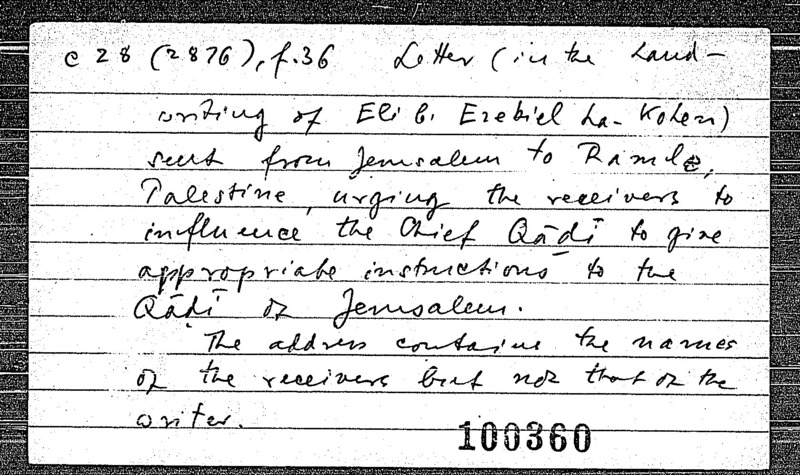 c 28 (2876), f.36 Letter (in the hand-
writing of Eli b. Ezekiel ha-Kohen)
sent from Jerusalem to Ramle,
Palestine, urging the receivers to
influence the Chief Qāḍī to give
appropriate instructions to the
Qāḍī of Jerusalem.
The address contains the names
of the receivers but not that of the
writer.
100360